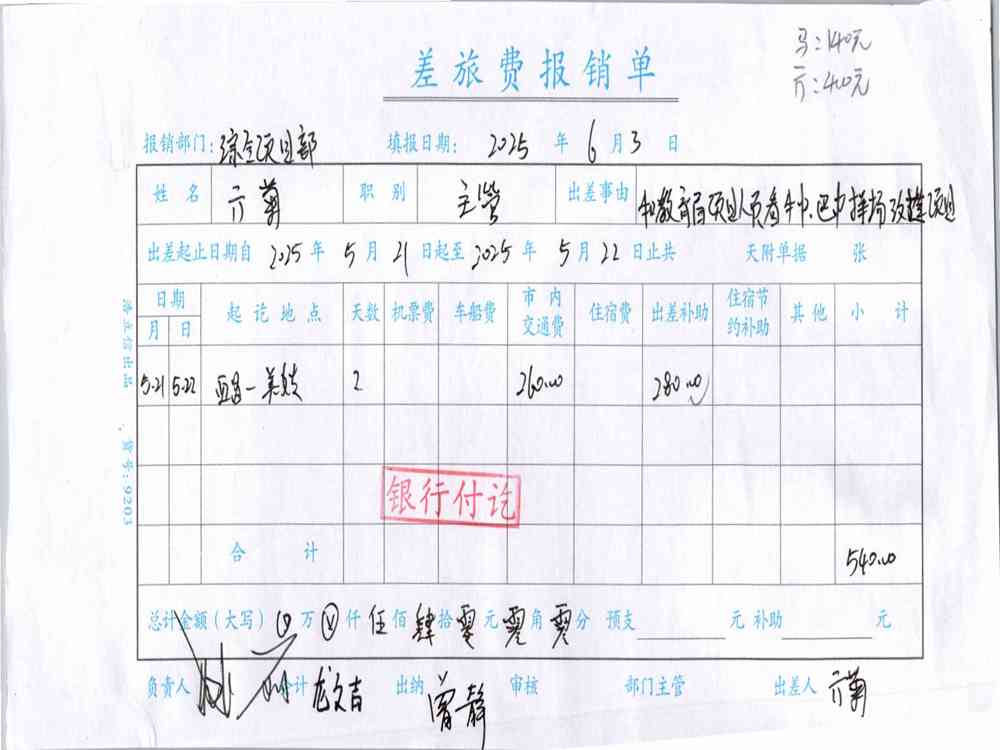 马:140元
亓:400元
差旅费报销单
报销部门: 综合项目部 填报日期: 2025 年 6 月 3 日
姓名 亓菊 职别 主管 出差事由 和教育局项目人员看
出差起止日期自 2025 年 5 月 21 日起至 2025 年 5 月 22 日止共 天附单据 张
日期 起讫地点 天数 机票费 车船费 市内交通费 住宿费 出差补助 住宿节约补助 其他 小计
月 日
5.21 5.22 2 260.00 280.00
银行付讫
合计 540.00
总计金额(大写) 万 仟 伍 佰 肆 拾 零 元 零 角 零 分 预支 元 补助 元
负责人 会计 龙文吉 出纳 曾静 审核 部门主管 出差人 亓菊
浩立信出品 货号:9203